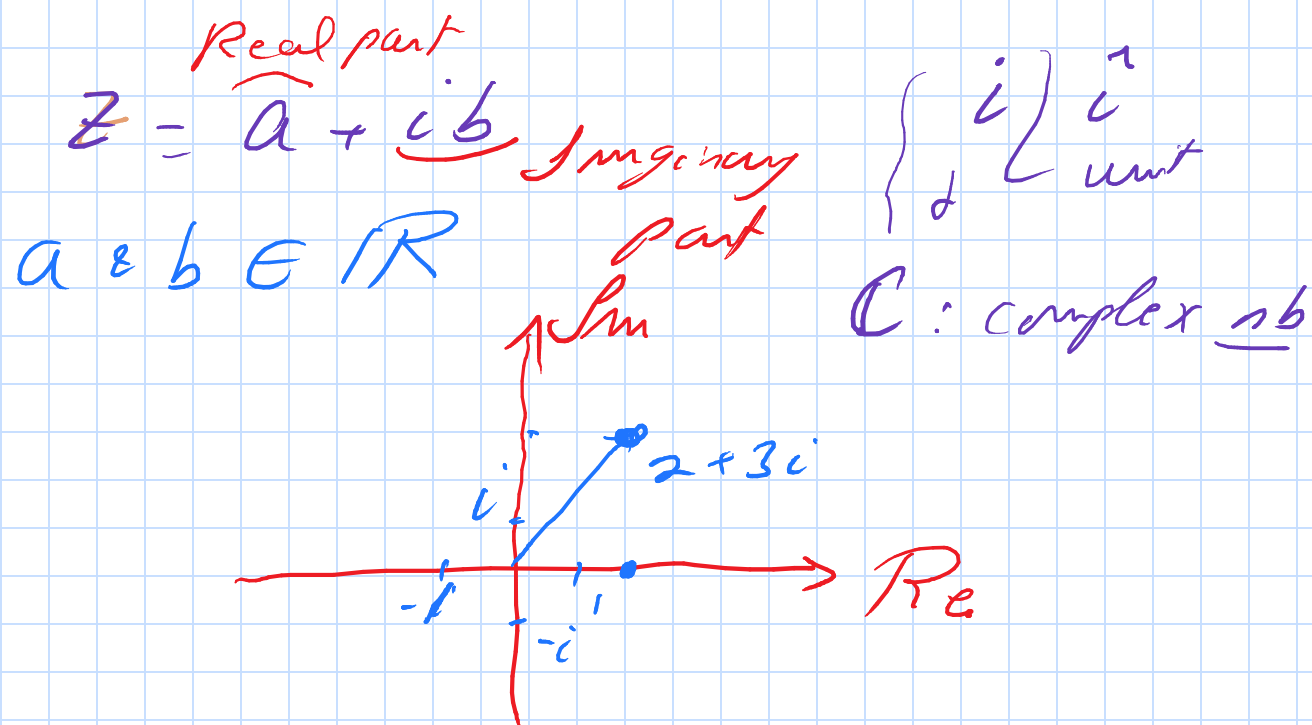 Real part
Z = a + ib
Imaginary
part
i
j
î
unit
a & b ∈ ℝ
ℂ : complex nb
Im
2 + 3i
i
-1
1
-i
Re